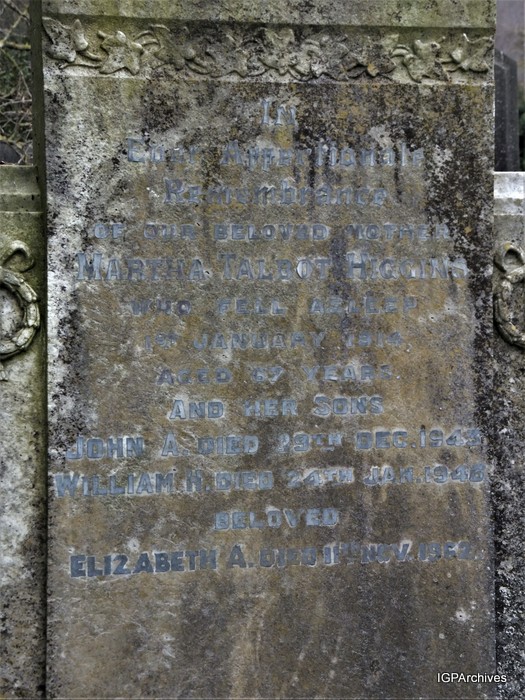 In
Ever Affectionate
Remembrance
OF OUR BELOVED MOTHER
MARTHA TALBOT HIGGINS
WHO FELL ASLEEP
1ST JANUARY 1914,
AGED 67 YEARS.
AND HER SONS
JOHN A. DIED 29TH DEC. 1943
WILLIAM. H. DIED 24TH JAN. 1948
BELOVED
ELIZABETH A. DIED 1ST NOV. 1962.
IGPArchives